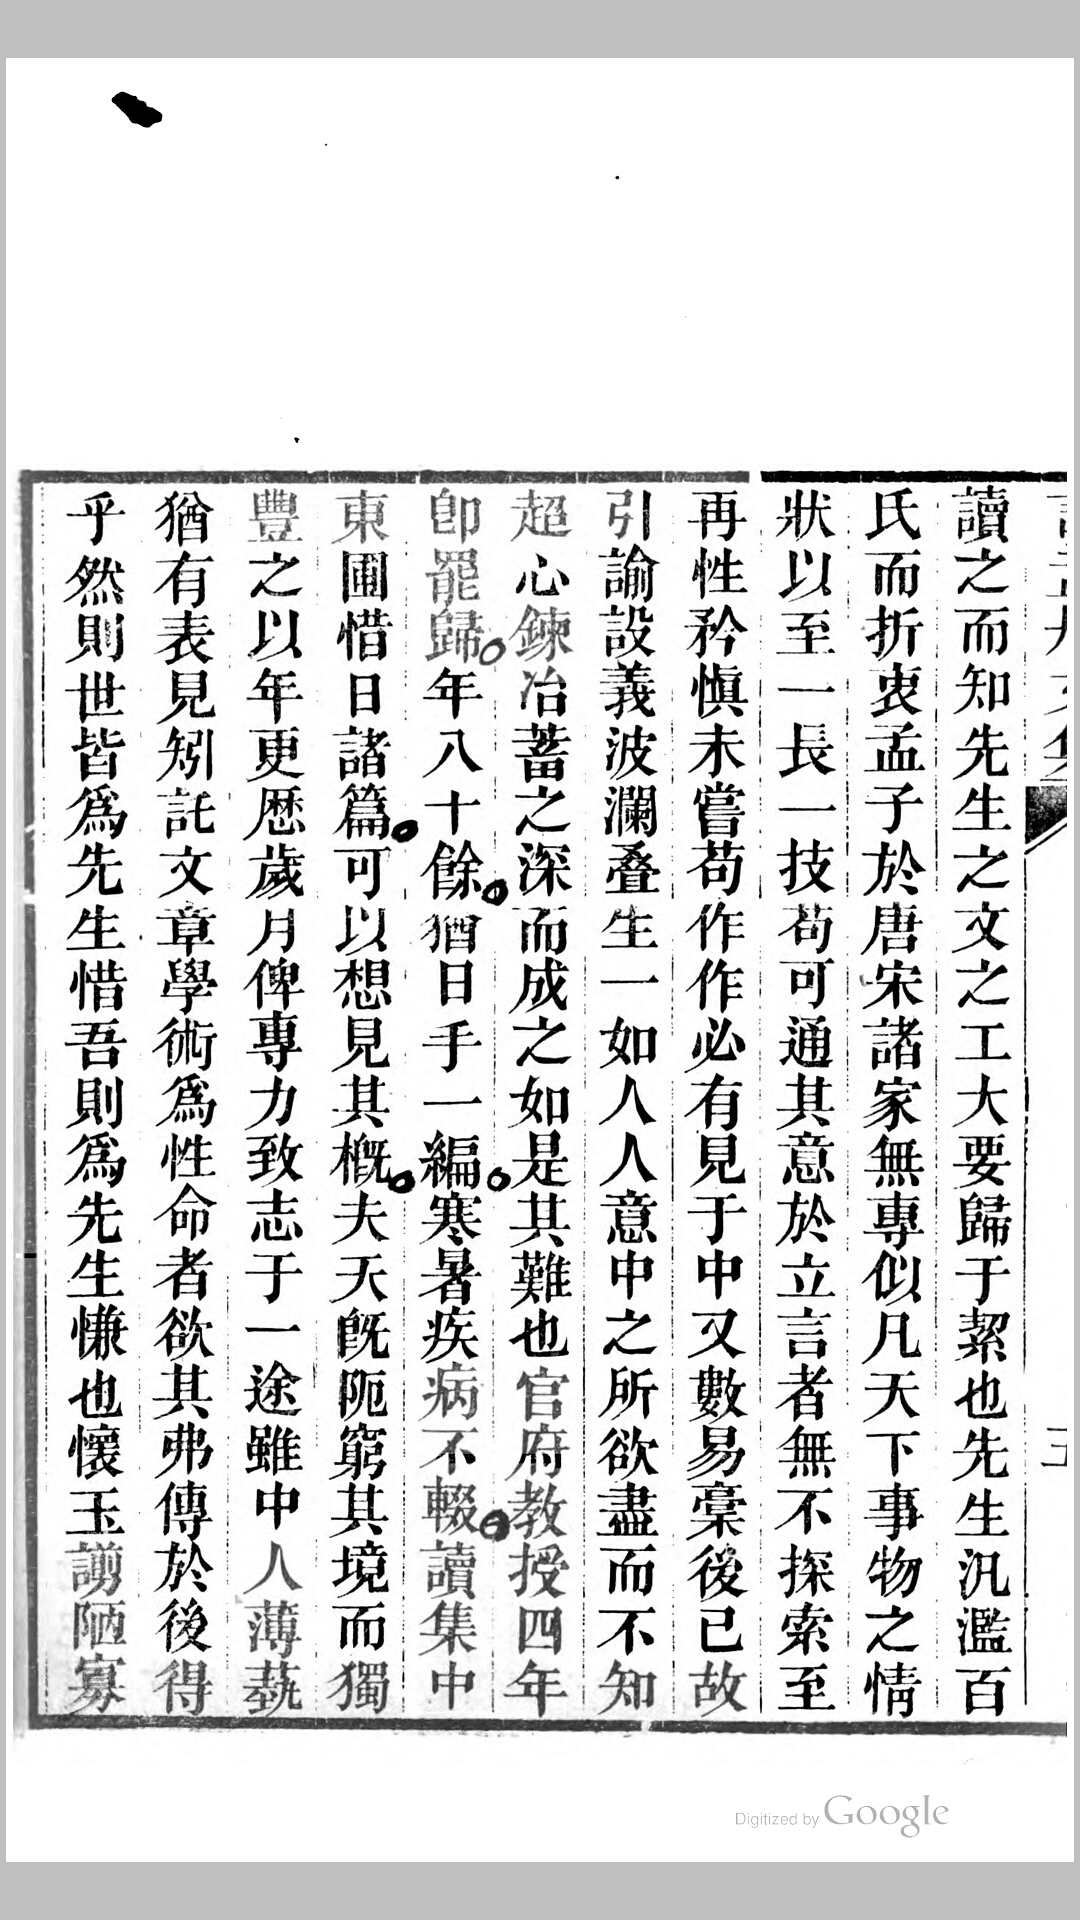 讀之而知先生之文之工大要歸于絜也先生汎濫百
氏而折衷孟子於唐宋諸家無專似凡天下事物之情
狀以至一長一技苟可通其意於立言者無不探索至
再性矜愼未嘗苟作作必有見于中又數易稾後已故
引諭設義波瀾叠生一如人人意中之所欲盡而不知
超心鍊冶蓄之深而成之如是其難也官府教授四年
卽罷歸年八十餘猶日手一編寒暑疾病不輟讀集中
東圃惜日諸篇可以想見其概夫天旣阨窮其境而獨
豐之以年更歷歲月俾專力致志于一途雖中人薄蓺
猶有表見矧託文章學術爲性命者欲其弗傳於後得
乎然則世皆爲先生惜吾則爲先生慊也懷玉謭陋寡
Digitized by Google